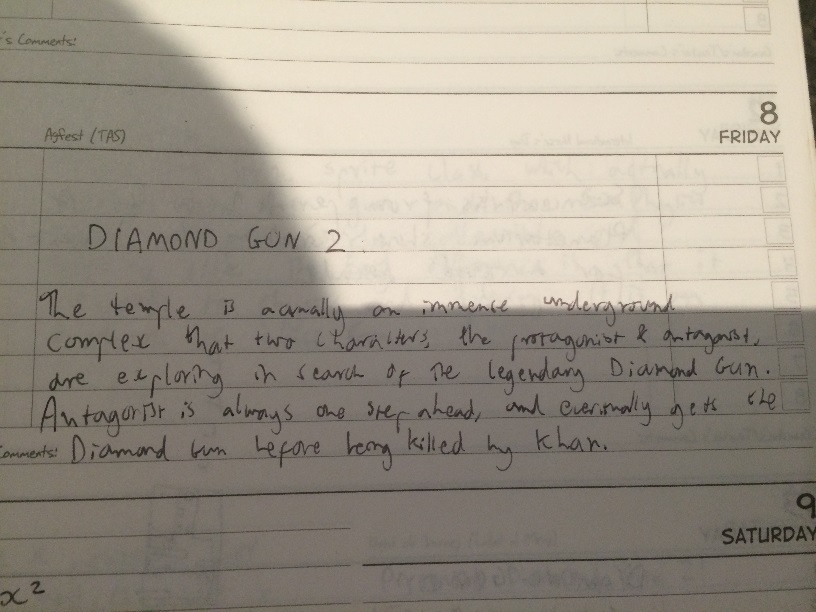 8
's Comments:
8
FRIDAY
Agfest (TAS)
DIAMOND GUN 2.
The temple is acrually an immence underground
complex that two characters, the protagonist & antagonist,
are exploring in search of the legendary Diamond Gun.
Antagonist is always one step ahead, and eventually gets the
Comments: Diamond Gun before being killed by Khan.
9
SATURDAY
x²